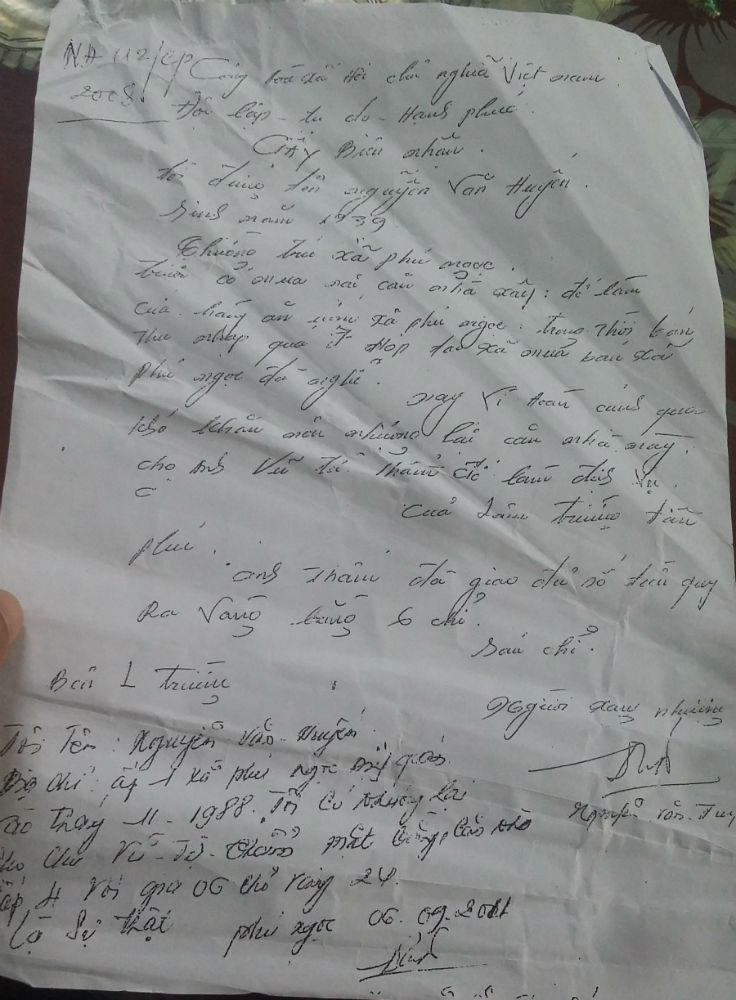 NĐ 112/CP
2008.
Cộng hoà xã hội chủ nghĩa Việt nam
Độc lập - tự do - Hạnh phúc
Giấy Biên nhận.
tôi đứng tên nguyễn Văn Huyến.
sinh năm 1939
Thường trú xã phú ngọc.
trước có mua căn nhà xây: để làm
cửa hàng ăn uống xã phú ngọc: trong thời
thu nhập qua xã mua bán xã
phú ngọc đã nghỉ.
nay vì hoàn cảnh quá
khó khăn nên nhượng lại căn nhà này.
cho anh Vũ Thẩm để làm dịch vụ.
của Lâm trường tân
phú.
anh Thẩm đã giao đủ số tiền quy
Ra Vàng bằng 6 chỉ.
sáu chỉ.
Bên L trường
Người sang nhượng
Tôi Tên: Nguyễn Văn Huyến.
Địa chỉ: ấp 1 xã phú ngọc quán
tháng 11-1988. Tôi có nhượng lại
cho chú Vũ Thẩm mặt bằng căn nhà
ấp 4 với giá 06 chỉ vàng 24.
Là sự thật phú ngọc 06.09.2011